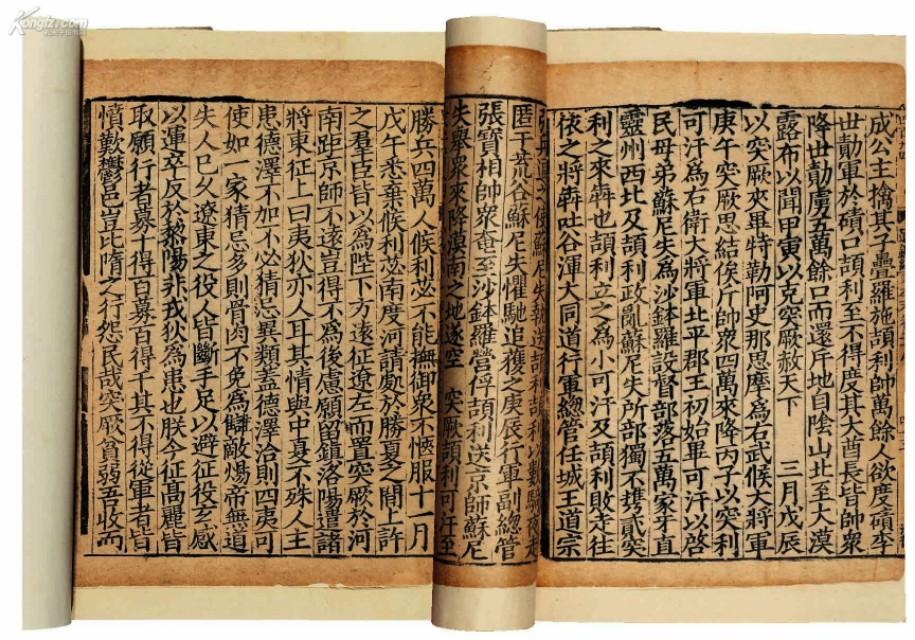 成公主擒其子疊羅施頡利帥萬餘人欲度磧李
世勣軍於磧口頡利至不得度其大酋長皆帥衆
降世勣虜五萬餘口而還斥地自陰山北至大漠
露布以聞甲寅以克突厥赦天下　三月戊辰
以突厥夾畢特勒阿史那思摩爲右武候大將軍
庚午突厥思結俟斤帥衆四萬來降丙子以突利
可汗爲右衛大將軍北平郡王初始畢可汗以啓
民母弟蘇尼失爲沙鉢羅設督部落五萬家牙直
靈州西北及頡利政亂蘇尼失所部獨不攜貳突
利之來犇也頡利立之爲小可汗及頡利敗走往
依之將犇吐谷渾大同道行軍緫管任城王道宗
之使蘇尼失執送頡利頡利以數騎夜走
匿于荒谷蘇尼失懼馳追獲之庚辰行軍副緫管
張寶相帥衆奄至沙鉢羅營俘頡利送京師蘇尼
失舉衆來降漠南之地遂空　突厥頡利可汗至
勝兵四萬人候利苾不能撫御衆不愜服十一月
戊午悉棄候利苾南度河請處於勝夏之間上許
之羣臣皆以爲陛下方遠征遼左而置突厥於河
南距京師不遠豈得不爲後慮願留鎮洛陽遣諸
將東征上曰夷狄亦人耳其情與中夏不殊人主
患德澤不加不必猜忌異類蓋德澤洽則四夷可
使如一家猜忌多則骨肉不免爲讎敵煬帝無道
失人已久遼東之役人皆斷手足以避征役玄感
以運卒反於黎陽非戎狄爲患也朕今征高麗皆
取願行者募十得百募百得千其不得從軍者皆
憤歎鬱邑豈比隋之行怨民哉突厥貧弱吾收而
Kongfz.com